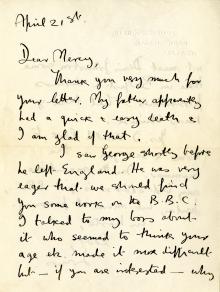 April 21st.
Dear Mercy,
Thank you very much for
your letter. My father apparently
had a quick & easy death &
I am glad of that.
I saw George shortly before
he left England. He was very
eager that we should find
you some work on the B.B.C.
I talked to my boss about
it who seemed to think your
age etc made it most difficult
but – if you are interested – why